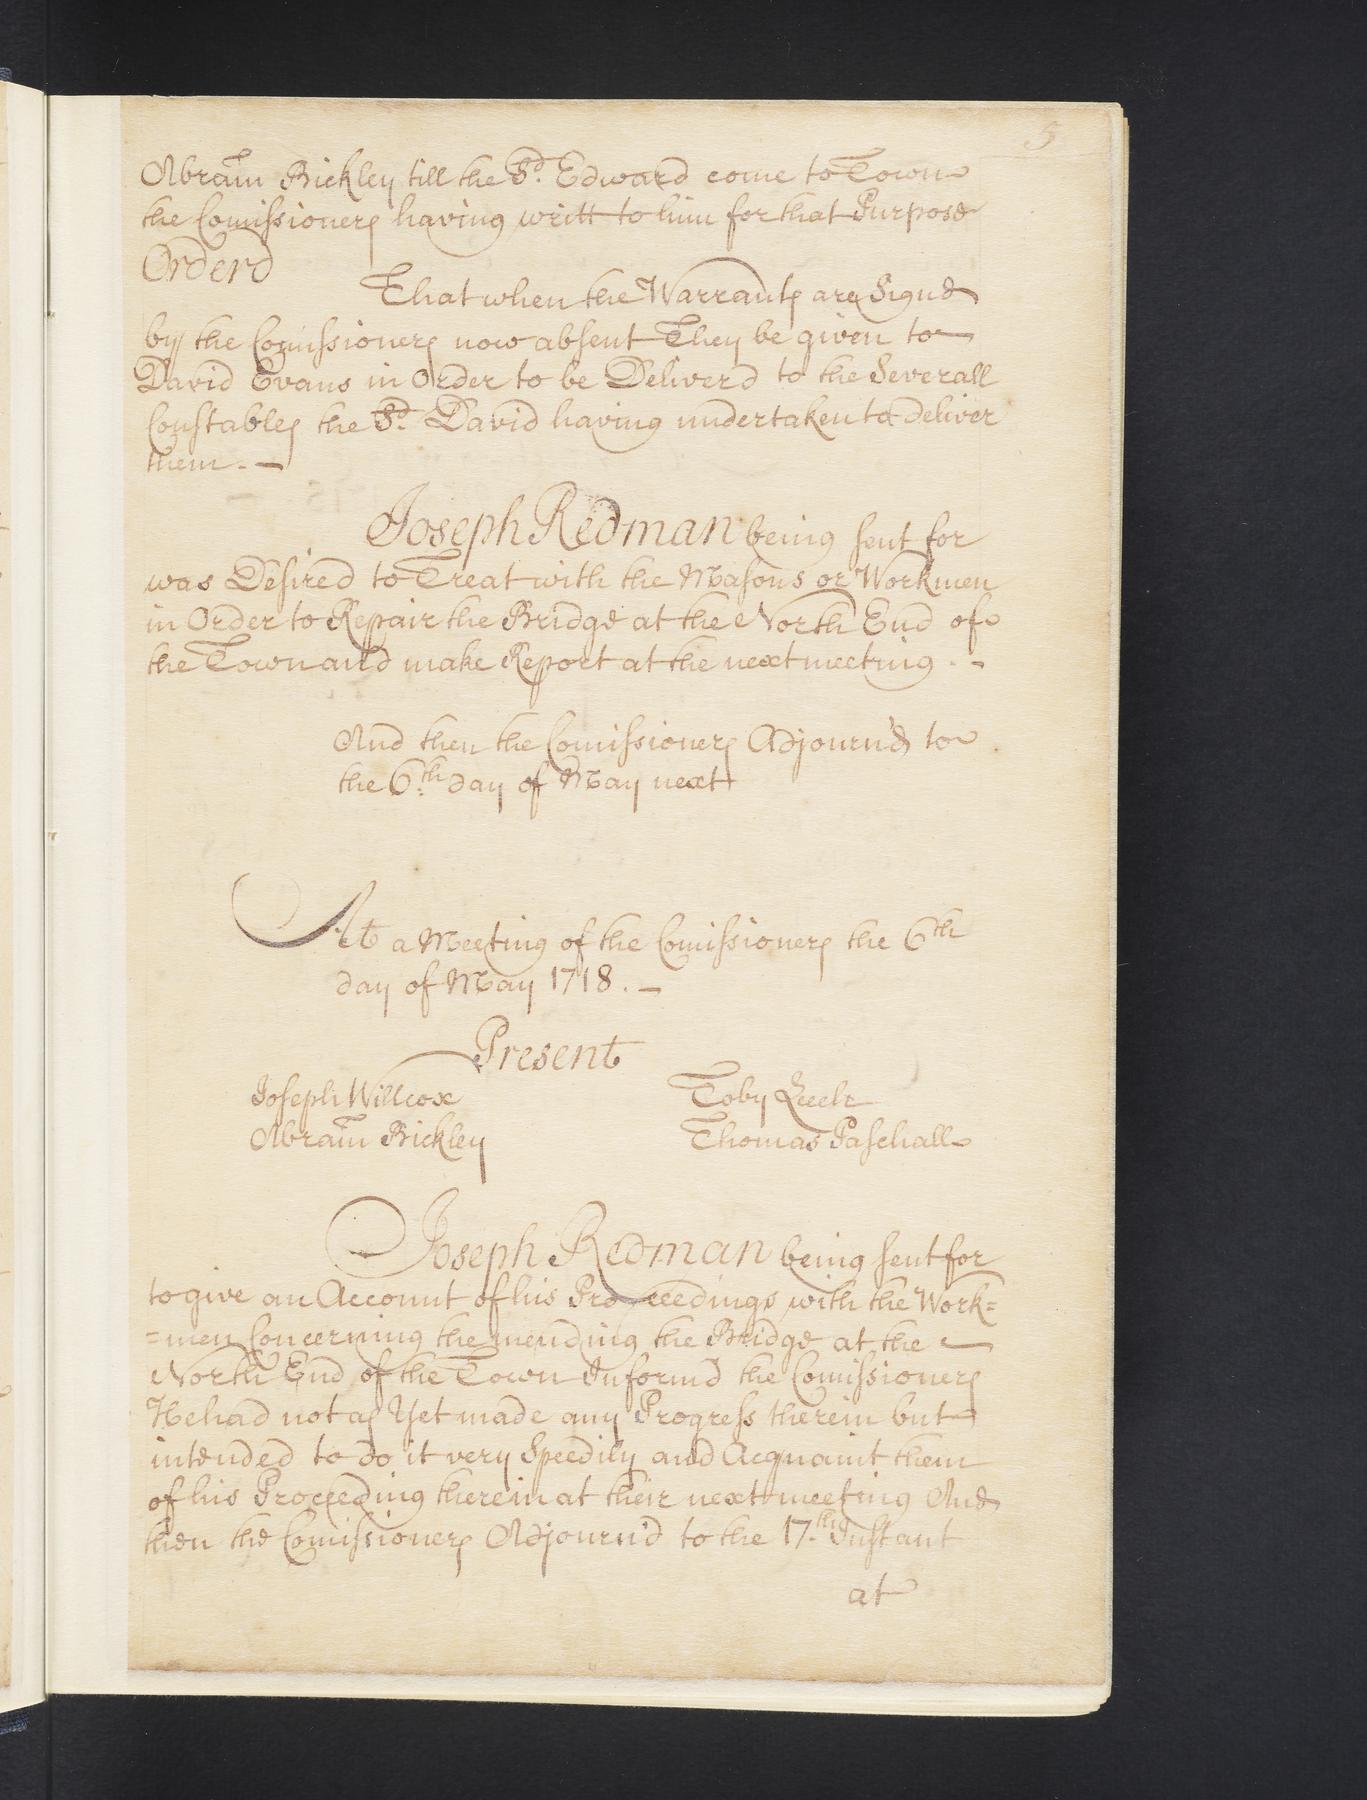 5
Abram Bickley till the Sd. Edward come to Town
the Comissioners having writt to him for that Purpose
Orderd
That when the Warrants are Signd
by the Comissioners now absent They be given to
David Evans in Order to be Deliverd to the Severall
Constables the Sd. David having undertaken to deliver
them. —
Joseph Redman being sent for
was Desired to Treat with the Masons or Workmen
in Order to Repair the Bridge at the North End of
the Town and make Report at the next meeting. -
And then the Comissioners Adjourn'd to
the 6th. day of May next
At a Meeting of the Comissioners the 6th
day of May 1718. —
Present
Joseph Willcox Toby Leech
Abram Bickley Thomas Paschall
Joseph Redman being sent for
to give an Account of his Proceedings with the Work=
=men Concerning the mending the Bridge at the —
North End of the Town Informd the Comissioners
He had not as Yet made any Progress therein but
intended to do it very Speedily and Acquaint them
of his Proceeding therein at their next meeting And
then the Comissioners Adjourn'd to the 17.th Instant
at